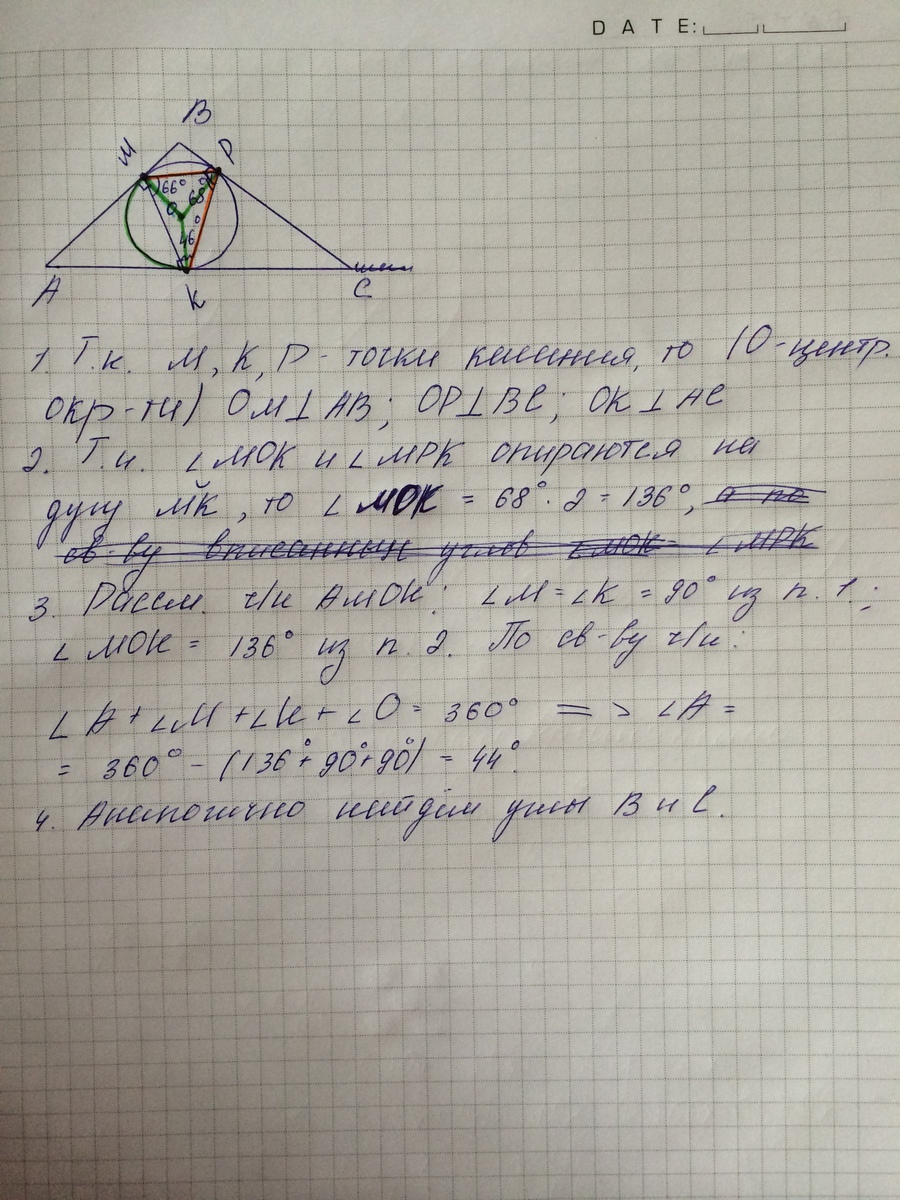 DATE:
B
M
P
66°
68°
O
46°
A
K
C
1. Т.к. M, K, P - точки касания, то (O-центр.
окр-ти) OM⊥AB; OP⊥BC; OK⊥AC
2. Т.к. ∠MOK и ∠MPK опираются на
дугу MK, то ∠MOK = 68°·2=136°, а по
св-ву вписанных углов ∠MOK= ∠MPK
3. Рассм. ч/к AMOK: ∠M=∠K=90° из п.1.;
∠MOK= 136° из п.2. По св-ву ч/к:
∠A+∠M+∠K+∠O= 360° => ∠A=
= 360° - (136°+90°+90°) = 44°.
4. Аналогично найдём углы B и C.